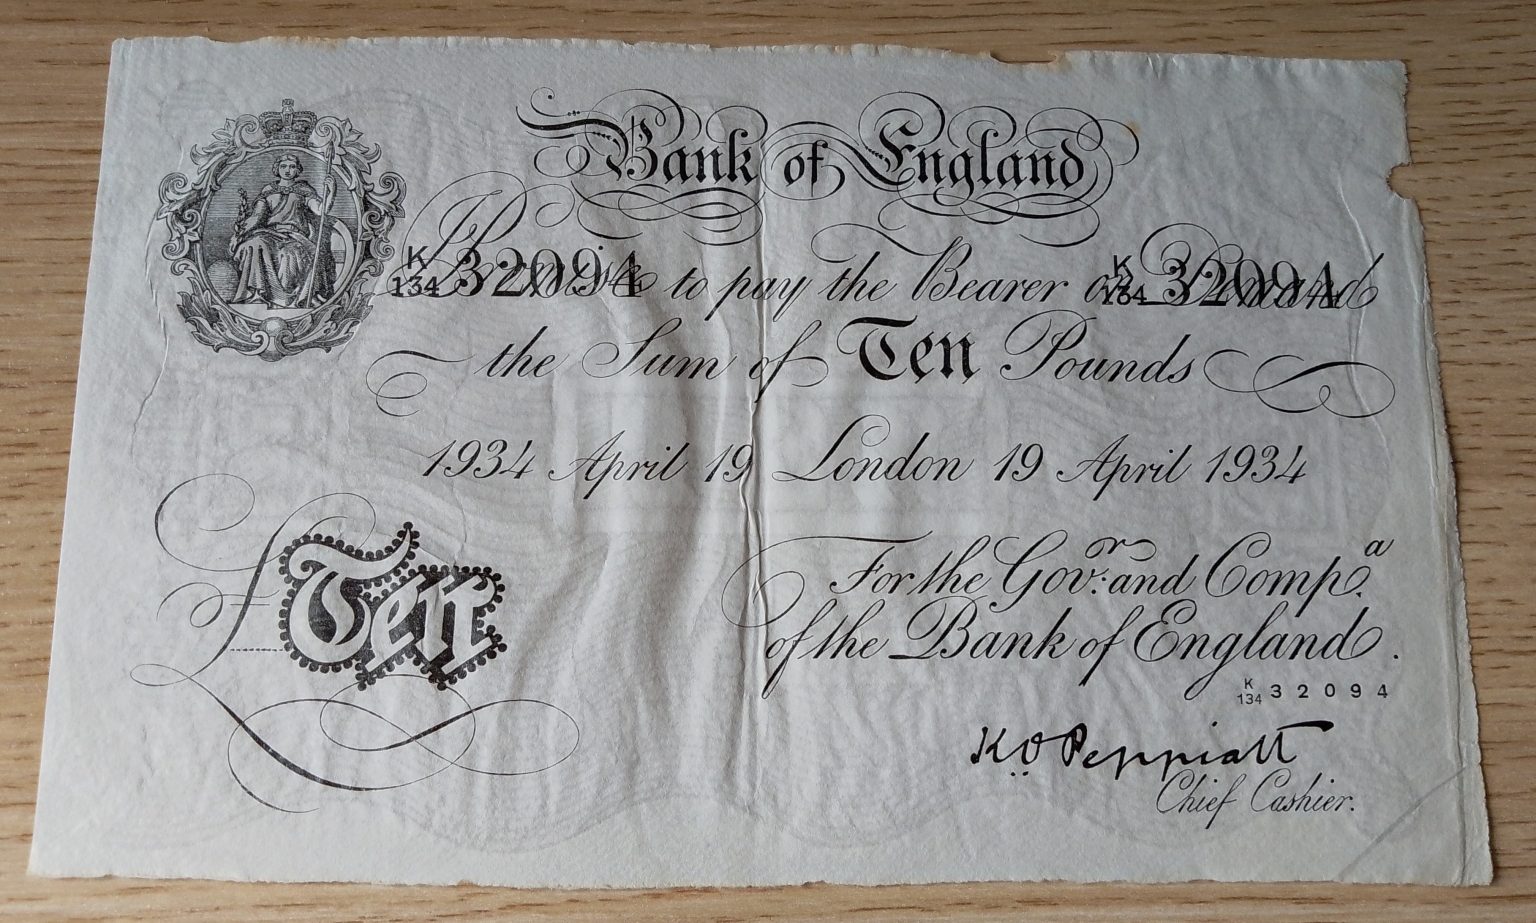 Bank of England
K
134 32094 I Promise to pay the Bearer on Demand K
134 32094
the Sum of Ten Pounds
1934 April 19 London 19 April 1934
£Ten
For the Govr: and Compa.
of the Bank of England.
K
134 32094
K.O. Peppiatt
Chief Cashier.